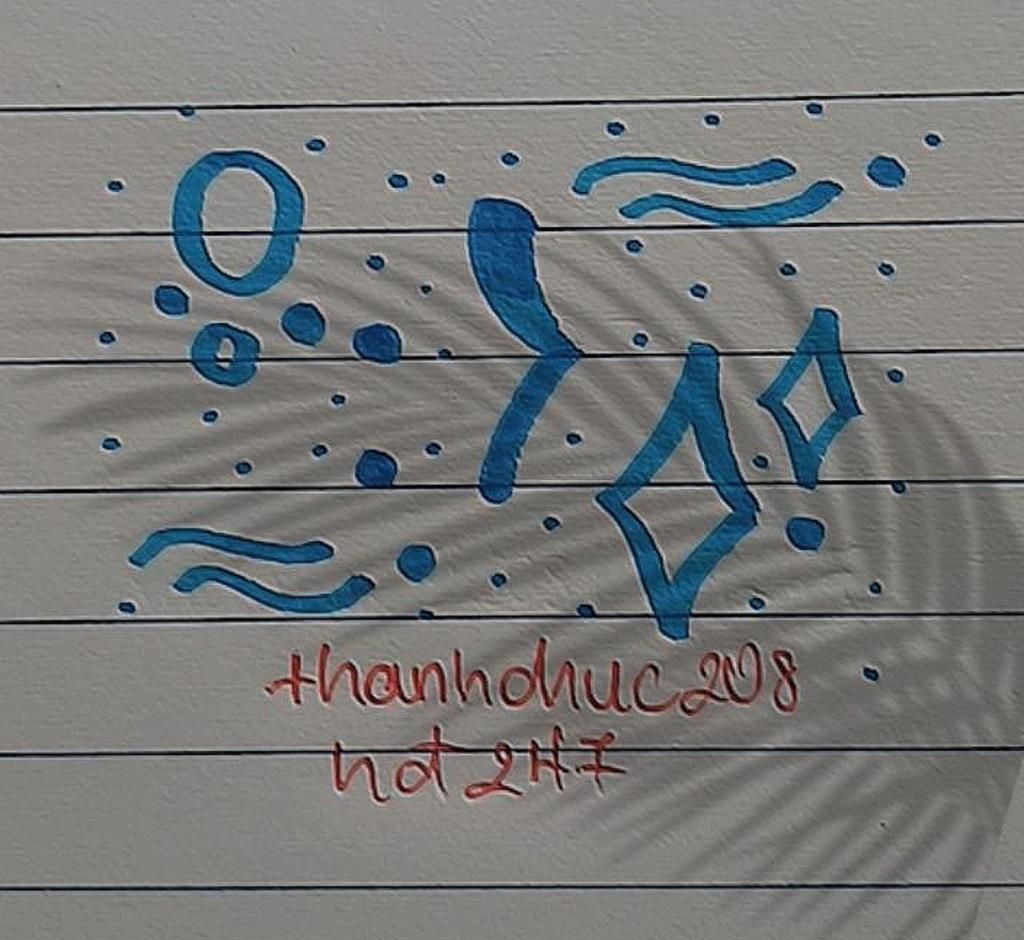 thanhdhuc208
hot 24.7